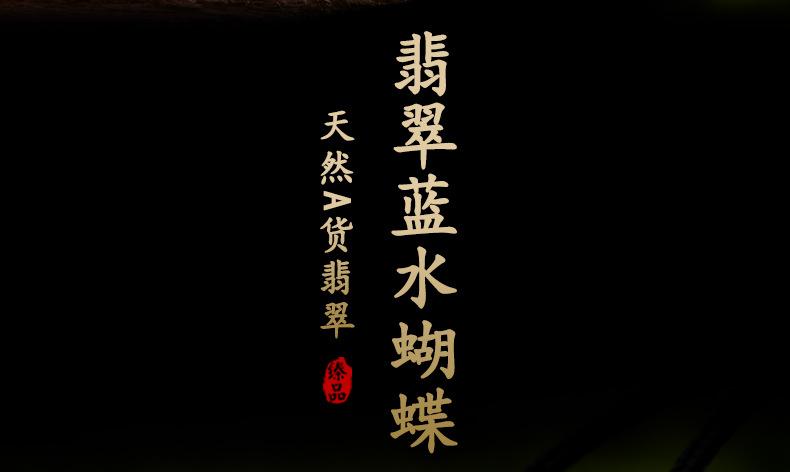 翡翠蓝水蝴蝶
天然A货翡翠
臻品